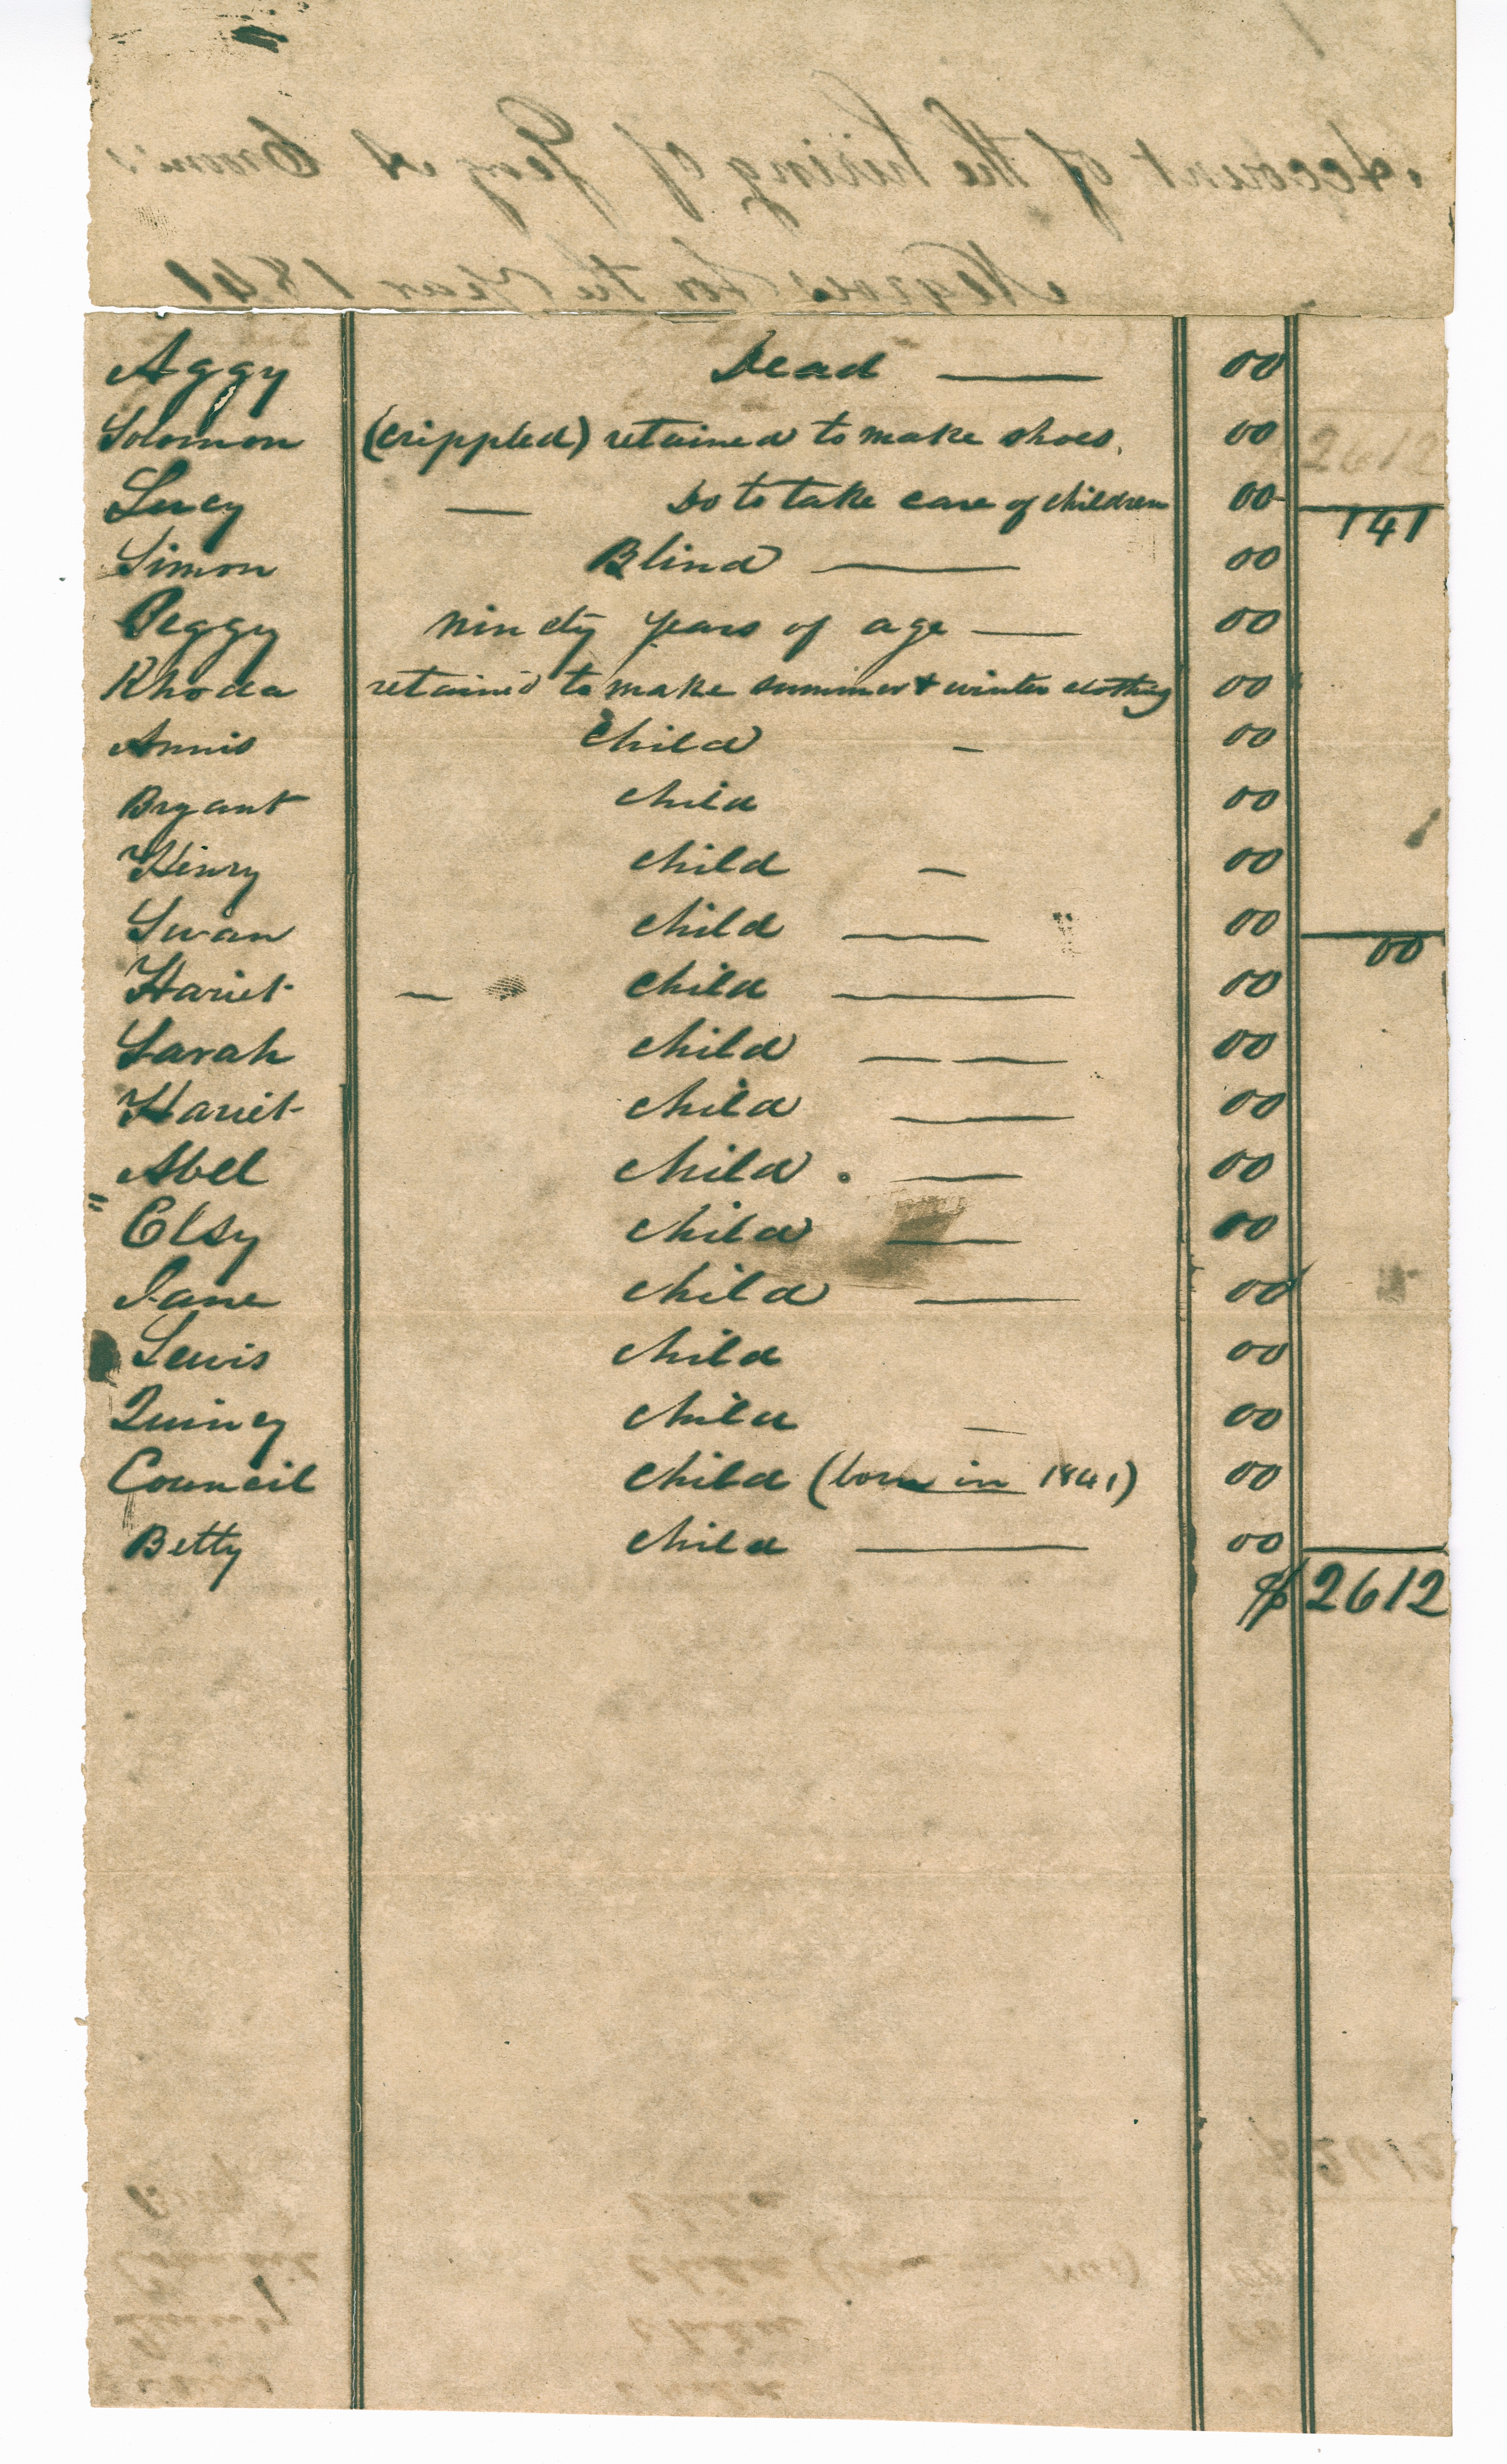 Account of the hiring of
Negroes for the Year 1841
Aggy Dead 00
Solomon (crippled) retained to make shoes. 00 2612
Lucy Do to take care of children 00 141
Simon Blind 00
Peggy ninety years of age 00
Rhoda retained to make summer & winter clothing 00
Annis Child 00
Bryant child 00
Henry child 00
Swan child 00 00
Hariet child 00
Sarah child 00
Hariet child 00
Abel child 00
Elsy child 00
Jane child 00
Lewis child 00
Quincy child 00
Council child (born in 1841) 00
Betty child 00
$ 2612